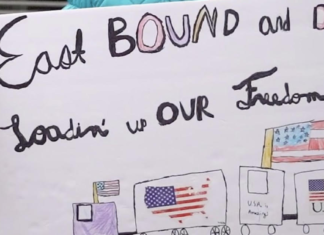 East BOUND and D
Loadin' up OUR Freedom